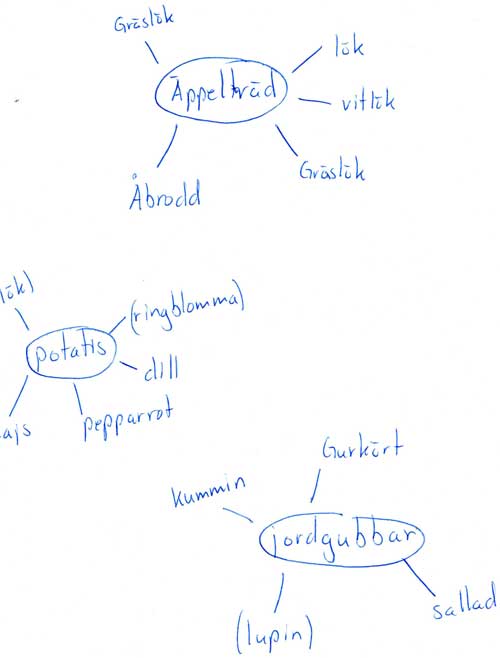 Gräslök
lök
Äppelträd
vitlök
Gräslök
Åbrodd
lök)
(ringblomma)
potatis
dill
ajs
pepparrot
Gurkört
kummin
jordgubbar
sallad
(lupin)